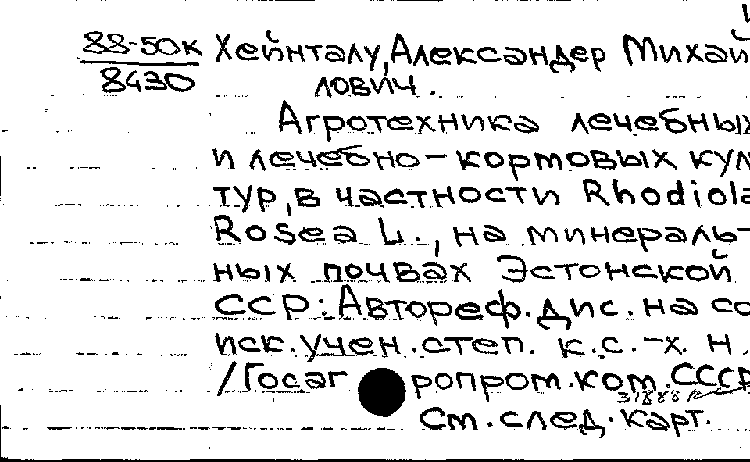 88-50к Хейнталу, Александр Михай
8430 лович.
Агротехника лечебных
и лечебно-кормовых кул
тур, в частности Rhodiola
Rosea L., на минераль-
ных почвах Эстонской
ССР: Автореф. дис. на со
иск. учен. степ. к. с.-х. н.
/Госаг ропром. ком. СССР
См. след. карт.